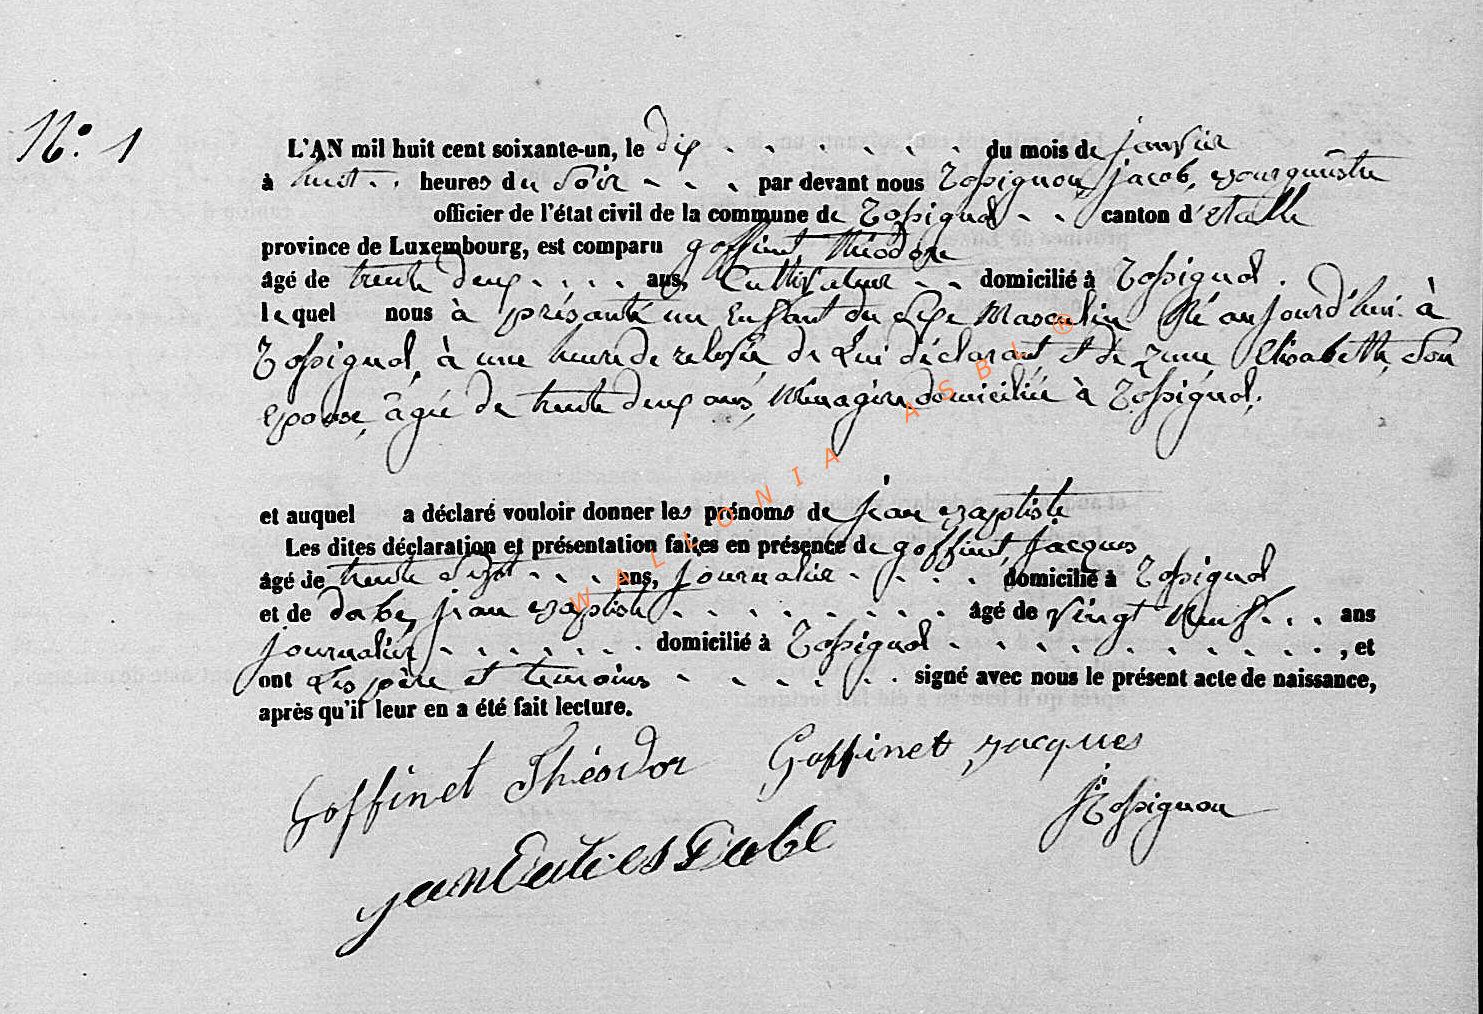 N.o 1
L'AN mil huit cent soixante-un, le dix du mois de janvier
à huit heures du soir par devant nous Rossignon jacob, Bourguemestre
officier de l'état civil de la commune de Rossignol canton d'Etalle
province de Luxembourg, est comparu goffinet, théodore
âgé de trente deux ans, Cultivateur domicilié à Rossignol.
lequel nous à présenté un Enfant du sexe Masculin Né aujourd'hui à
Rossignol, à une heure de relevée, de Lui déclarant et de Elisabeth, son
Epouse, âgée de trente deux ans, Ménagère domiciliée à Rossignol.
et auquel a déclaré vouloir donner les prénoms de jean Baptiste
Les dites déclaration et présentation faites en présence de goffinet, jacques
âgé de trente sept ans, journalier domicilié à Rossignol
et de dabe, jean Baptiste âgé de vingt Neuf ans
journalier domicilié à Rossignol, et
ont Les père et temoins signé avec nous le présent acte de naissance,
après qu'il leur en a été fait lecture.
Goffinet Théodor Goffinet jacques
J Rossignon
jean Dabe
WALLONIA ASBL ®